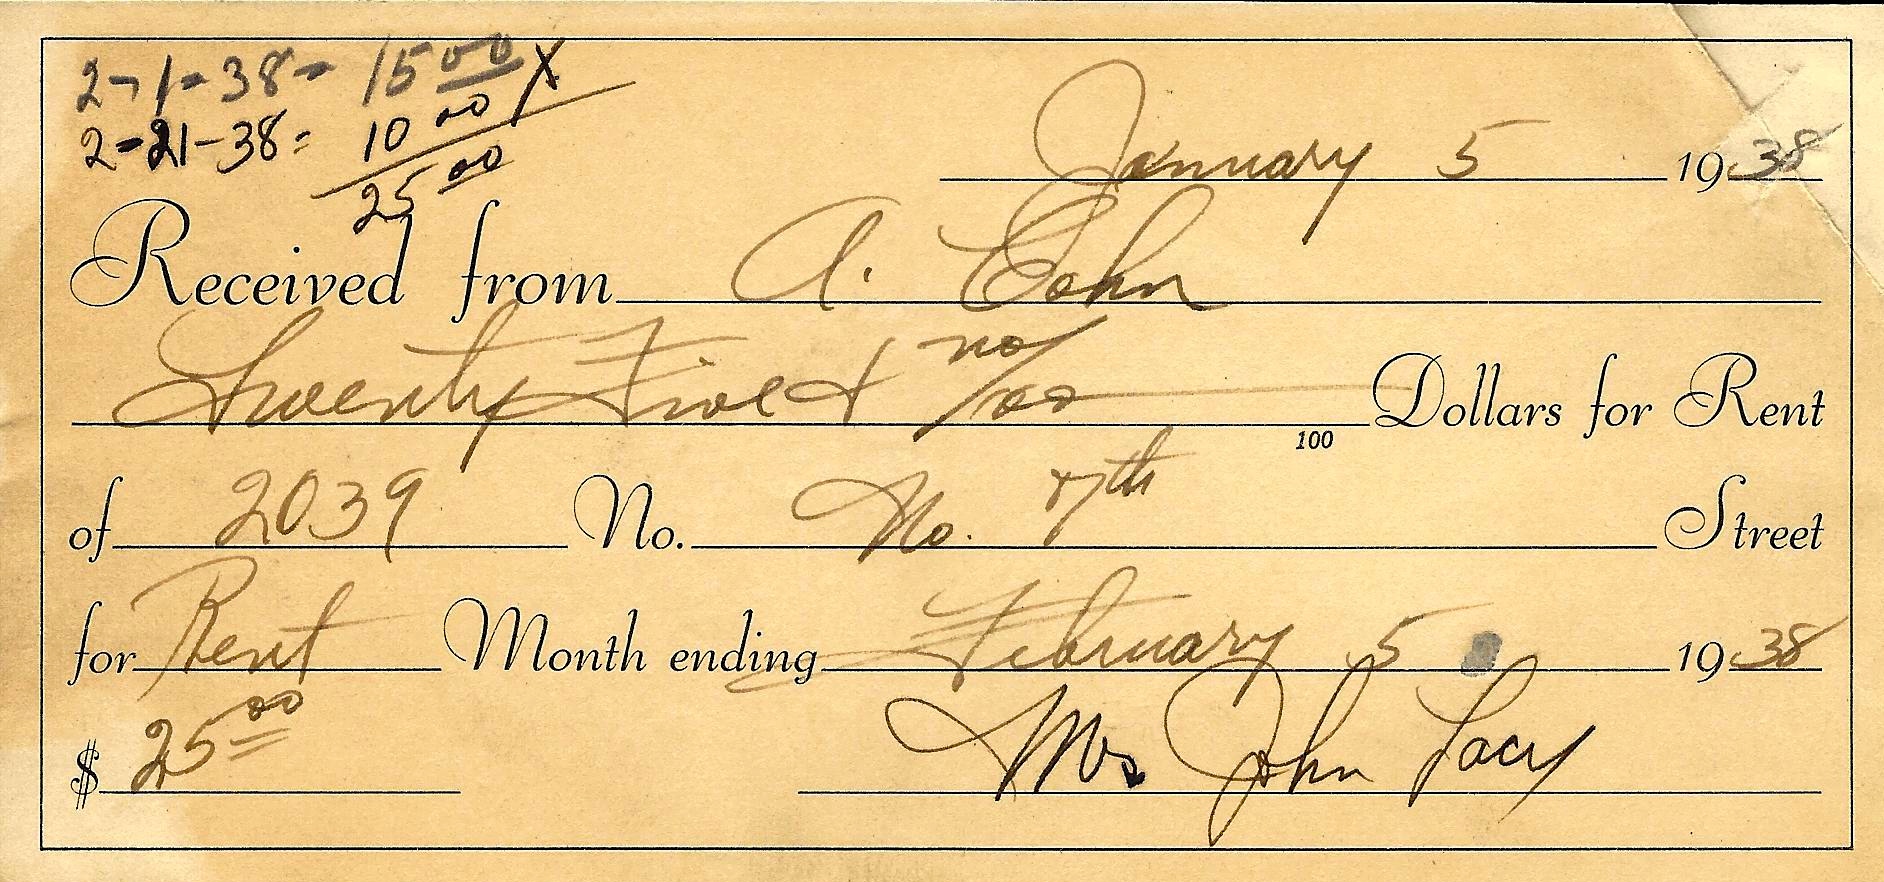 2-1-38- 15 00 X
2-21-38= 10 00
25 00
January 5 1938
Received from A. Cohn
Twenty Five & no/100 100 Dollars for Rent
of 2039 No. No. 7th Street
for Rent Month ending February 5 1938
$ 25 00 Mrs John Lacy